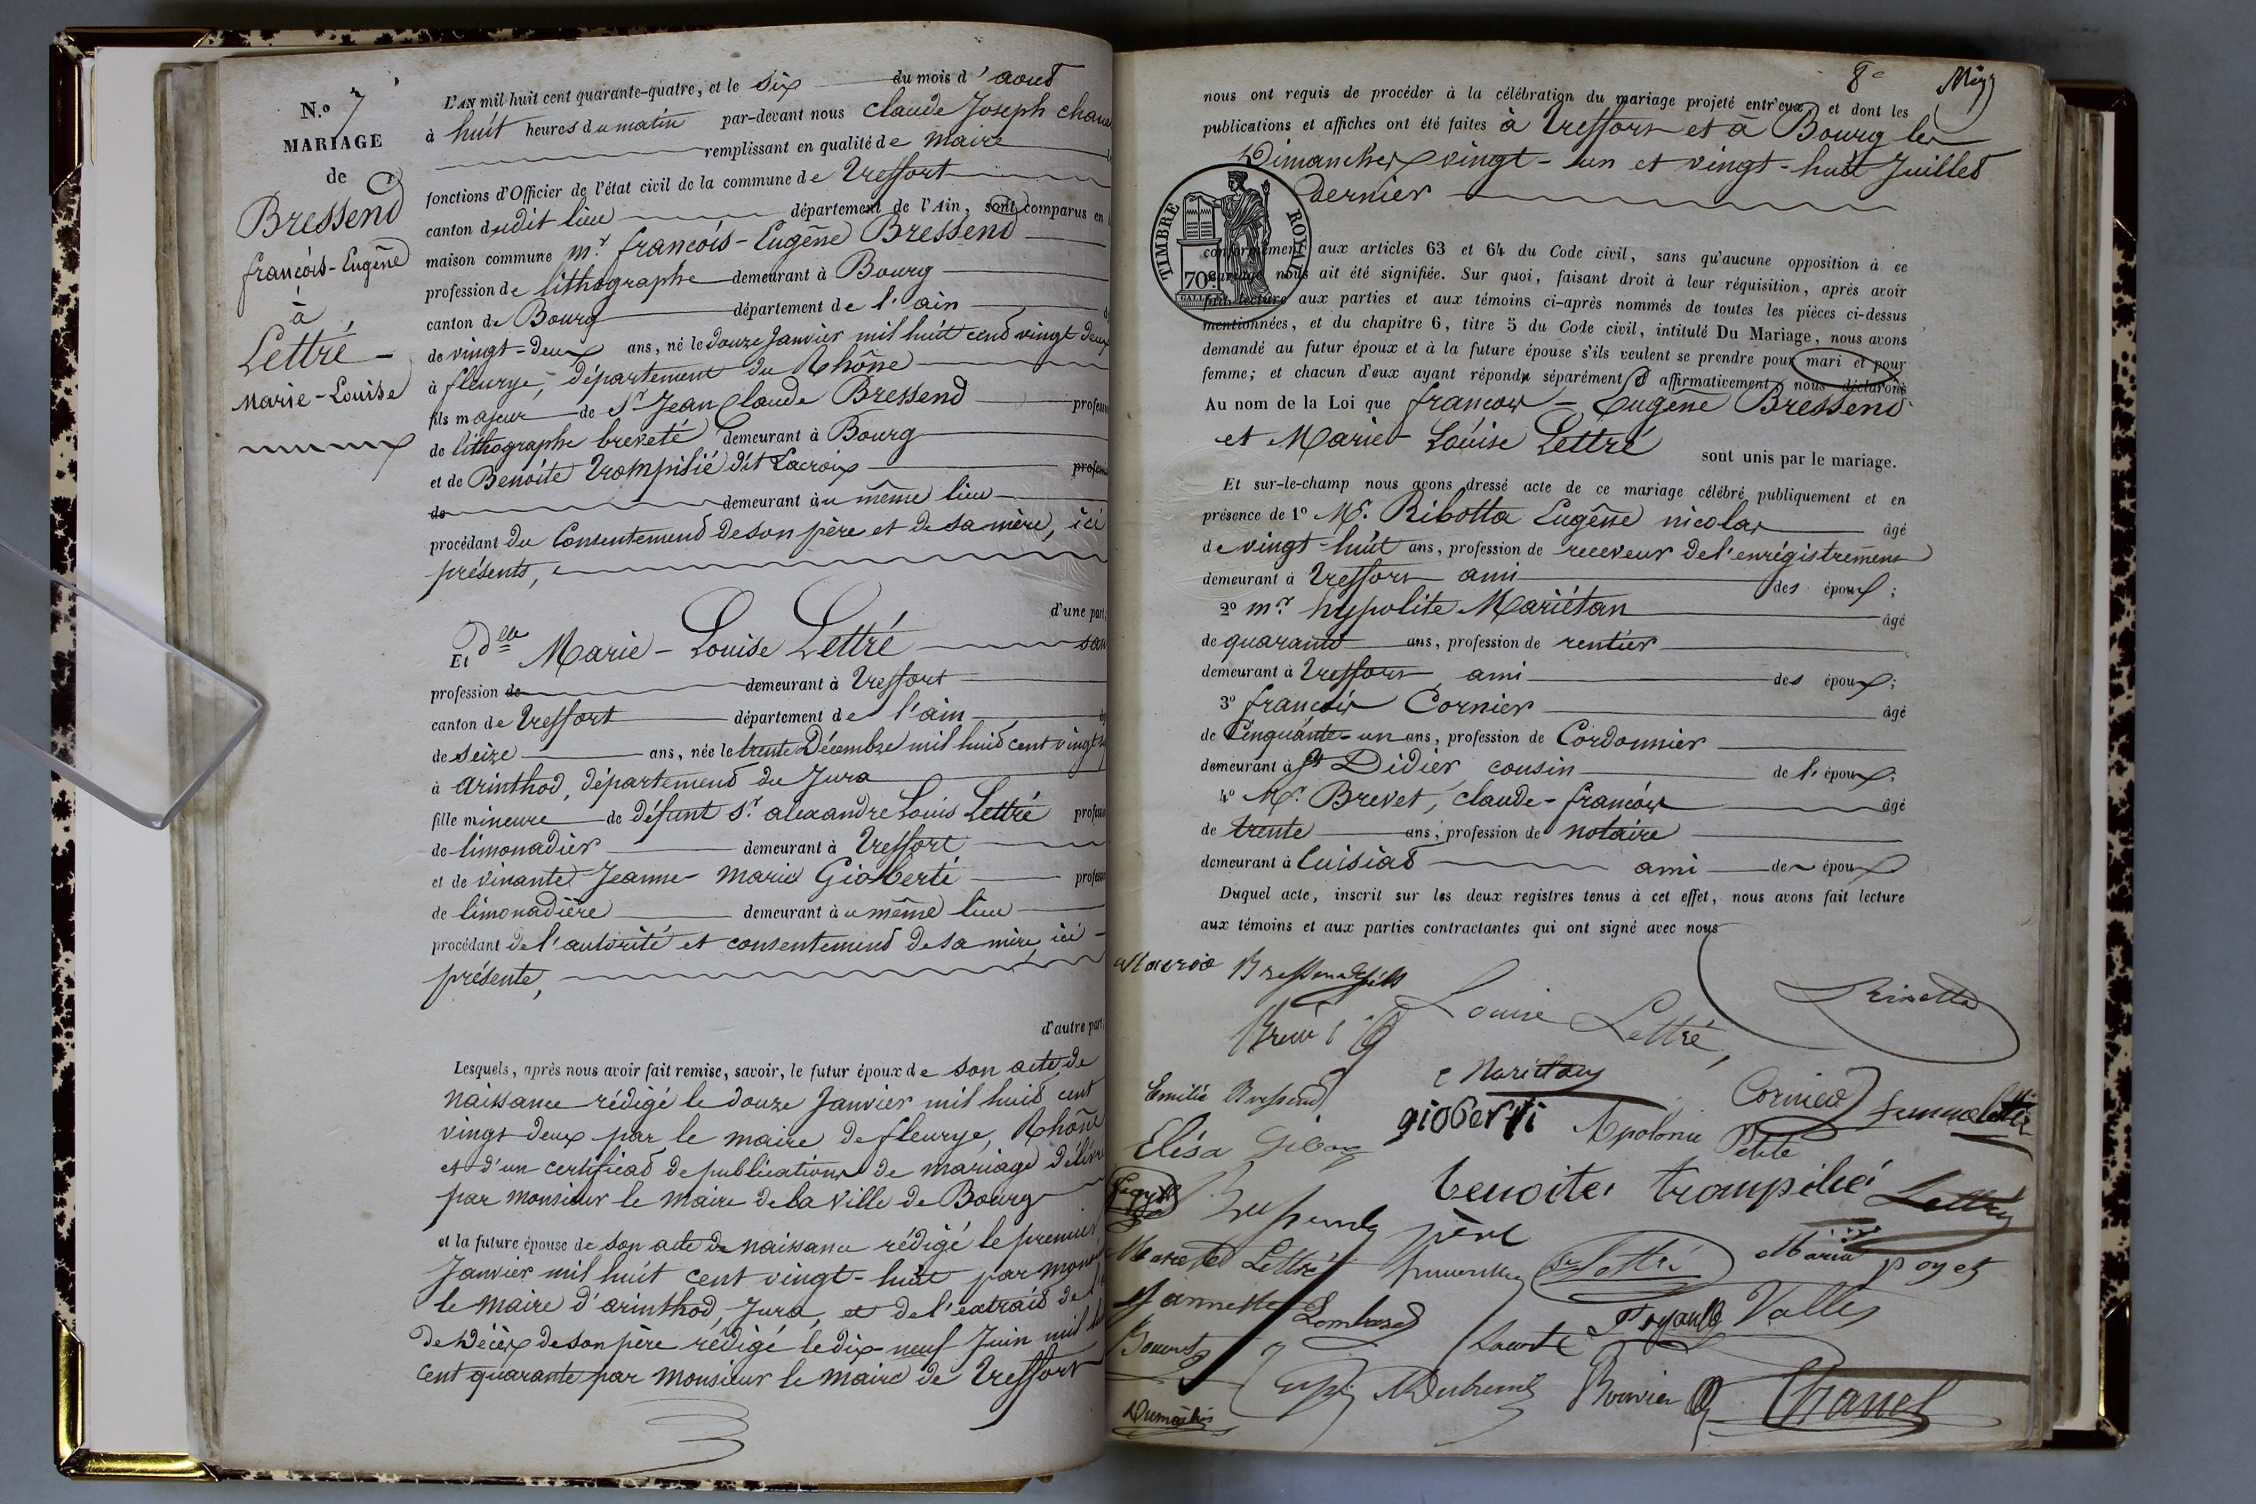 N.º 7
MARIAGE
de
Bressend
françois-Eugène
à
Lettré
Marie-Louise
L'AN mil huit cent quarante-quatre, et le six du mois d'aout
à huit heures du matin par-devant nous Claude Joseph Chanel
remplissant en qualité de maire
fonctions d'Officier de l'état civil de la commune de Treffort
canton dudit lieu département de l'Ain, sont comparus en
maison commune mr françois-Eugène Bressend
profession de lithographe demeurant à Bourg
canton de Bourg département de l'ain
de vingt-deux ans, né le douze Janvier mil huit cent vingt deux
à fleurye, département du Rhône
fils majeur de Sr Jean Claude Bressend profession
de lithographe breveté demeurant à Bourg
et de Benoîte Trompilié dit Lacroix profession
de demeurant au même lieu
procédant du Consentement de son père et de sa mère, ici
présents,
d'une part;
Et dlle Marie-Louise Lettré sans
profession de demeurant à Treffort
canton de Treffort département de l'ain
de seize ans, née le trente Décembre mil huit cent vingt
à arinthod, département du Jura
fille mineure de défunt Sr alexandre Louis Lettré profession
de limonadier demeurant à Treffort
et de vivante Jeanne-Marie Gioberté profession
de limonadière demeurant au même lieu
procédant de l'autorité et consentement de sa mère, ici
présente,
d'autre part;
Lesquels, après nous avoir fait remise, savoir, le futur époux de son acte de
naissance rédigé le douze Janvier mil huit cent
vingt deux par le maire de fleurye, Rhône
et d'un certificat de publications de mariage délivré
par monsieur le maire de la ville de Bourg
et la future épouse de son acte de naissance rédigé le premier
Janvier mil huit cent vingt-huit par
le maire d'arinthod, Jura, et de l'extrait de
de décès de son père rédigé le dix-neuf Juin mil
cent quarante par monsieur le maire de Treffort
8e
nous ont requis de procéder à la célébration du mariage projeté entr'eux, et dont les
publications et affiches ont été faites à Treffort et à Bourg les
Dimanches vingt-un et vingt-huit Juillet
dernier
TIMBRE ROYAL
70c.
conformément aux articles 63 et 64 du Code civil, sans qu'aucune opposition à ce
mariage nous ait été signifiée. Sur quoi, faisant droit à leur réquisition, après avoir
fait lecture aux parties et aux témoins ci-après nommés de toutes les pièces ci-dessus
mentionnées, et du chapitre 6, titre 5 du Code civil, intitulé Du Mariage, nous avons
demandé au futur époux et à la future épouse s'ils veulent se prendre pour mari et pour
femme; et chacun d'eux ayant répondu séparément et affirmativement, nous déclarons
Au nom de la Loi que françois-Eugène Bressend
et Marie-Louise Lettré
sont unis par le mariage.
Et sur-le-champ nous avons dressé acte de ce mariage célébré publiquement et en
présence de 1º Mr. Ribotta Eugène nicolas âgé
de vingt-huit ans, profession de receveur de l'enrégistrement
demeurant à Treffort ami des époux;
2º mr hypolite Mariétan âgé
de quarante ans, profession de rentier
demeurant à Treffort ami des époux;
3º françois Cornier âgé
de Cinquante-un ans, profession de Cordonnier
demeurant à St Didier cousin de l'époux;
4º Mr. Brevet, claude-françois âgé
de trente ans, profession de notaire
demeurant à Cuisiat ami de époux
Duquel acte, inscrit sur les deux registres tenus à cet effet, nous avons fait lecture
aux témoins et aux parties contractantes qui ont signé avec nous
Bressend fils
Louise Lettré
Emilie Bressend
Cornier
Elisa
gioberti
Apolonie Petite
benoite trompilié
Lettré
père
Lettré
Maria poyet
Jannette Lombard
Vallet
Bouvier
Chanel